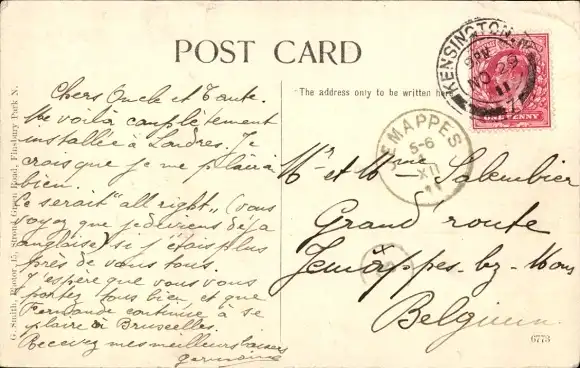 POST CARD
The address only to be written here
G. Smith, Photor, 15, Stroud Green Road, Finsbury Park N.
Chers Oncle et Tante.
Me voilà complètement
installée à Londres. Je
crois que je me plairai
bien.
Ce serait "all right" (vous
voyez que je deviens déjà
anglaise) si j'étais plus
près de vous tous.
J'espère que vous vous
portez tous bien et que
Fernande continue à se
plaire à Bruxelles.
Recevez mes meilleurs baisers
germaine
KENSINGTON
NO 29
11
ONE PENNY
JEMAPPES
5-6
XII
Mr et Mme Lalembier
Grand'route
Jemappes-lez-Mons
Belgium
6773